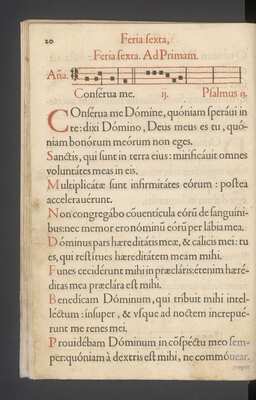 20 Feria sexta,
Feria sexta. Ad Primam.
Aña.
Consérua me. ij. Psalmus 15.
COnsérua me Dómine, quóniam speráui in
te: dixi Dómino, Deus meus es tu, quó-
niam bonórum meórum non eges.
Sanctis, qui sunt in terra eius: mirificáuit omnes
voluntátes meas in eis.
Multiplicátæ sunt infirmitátes eórum: postea
accelerauérunt.
Non congregábo cõuenticula eórũ de sanguini-
bus: nec memor ero nóminũ eórũ per lábia mea.
Dóminus pars hæreditátis meæ, & cálicis mei: tu
es, qui restítues hæreditátem meam mihi.
Funes cecidérunt mihi in præcláris: étenim hæré-
ditas mea præclára est mihi.
Benedícam Dóminum, qui tríbuit mihi intel-
léctum: ínsuper, & vsque ad noctem increpué-
runt me renes mei.
Prouidébam Dóminum in cõspéctu meo sem-
per: quóniam à dextris est mihi, ne commóuear.